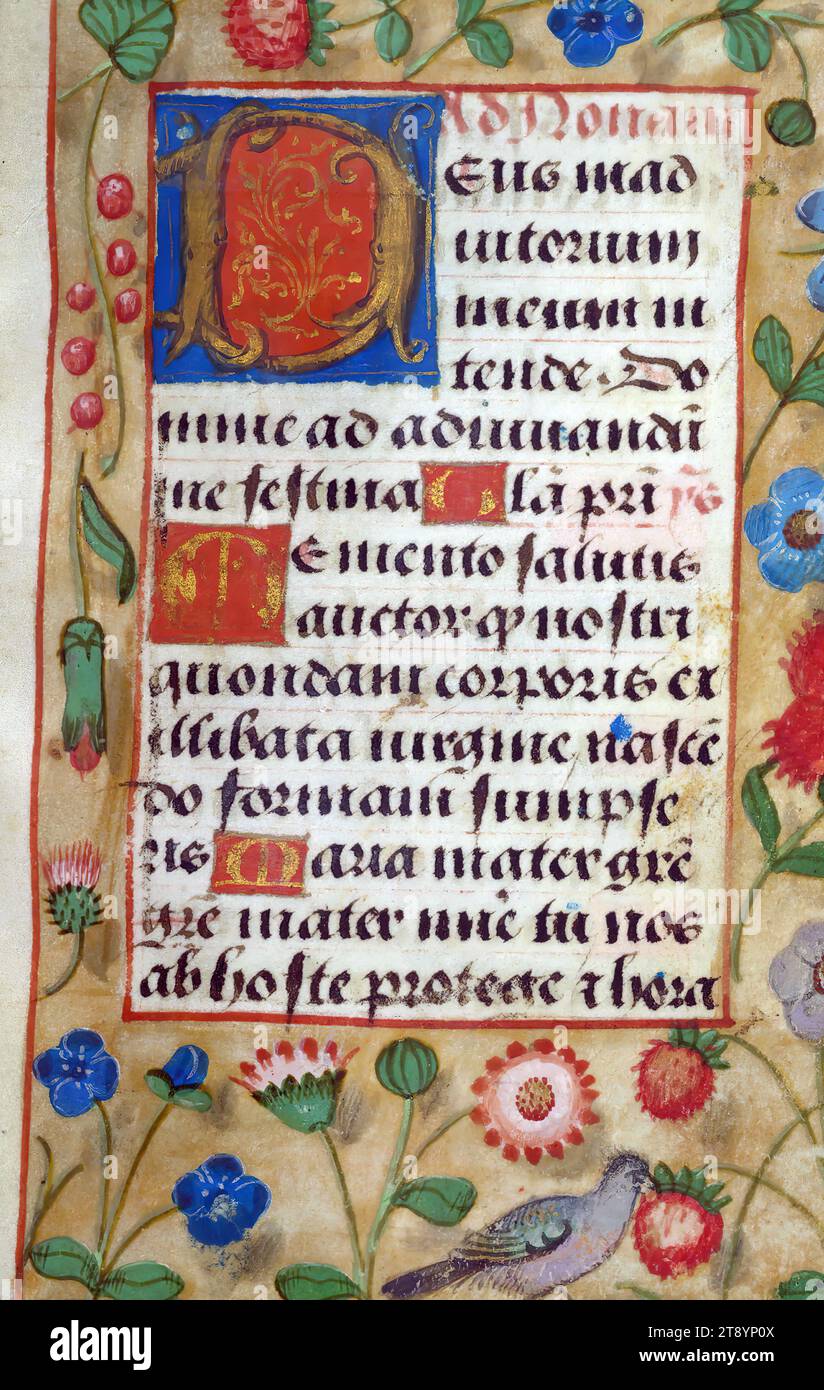 Ad Nonam
Deus in ad
iutorium
meum in
tende. Do
mine ad adiuuandū
me festina Glā pri ps
Memento salutis
auctor ꝙ nostri
quondam corporis ex
illibata uirgine nascē
do formam sumpse
ris Maria mater grē
gre mater nūc tu nos
ab hoste protege ⁊ hora
alamy
Image ID: 2T8YP0X
www.alamy.com